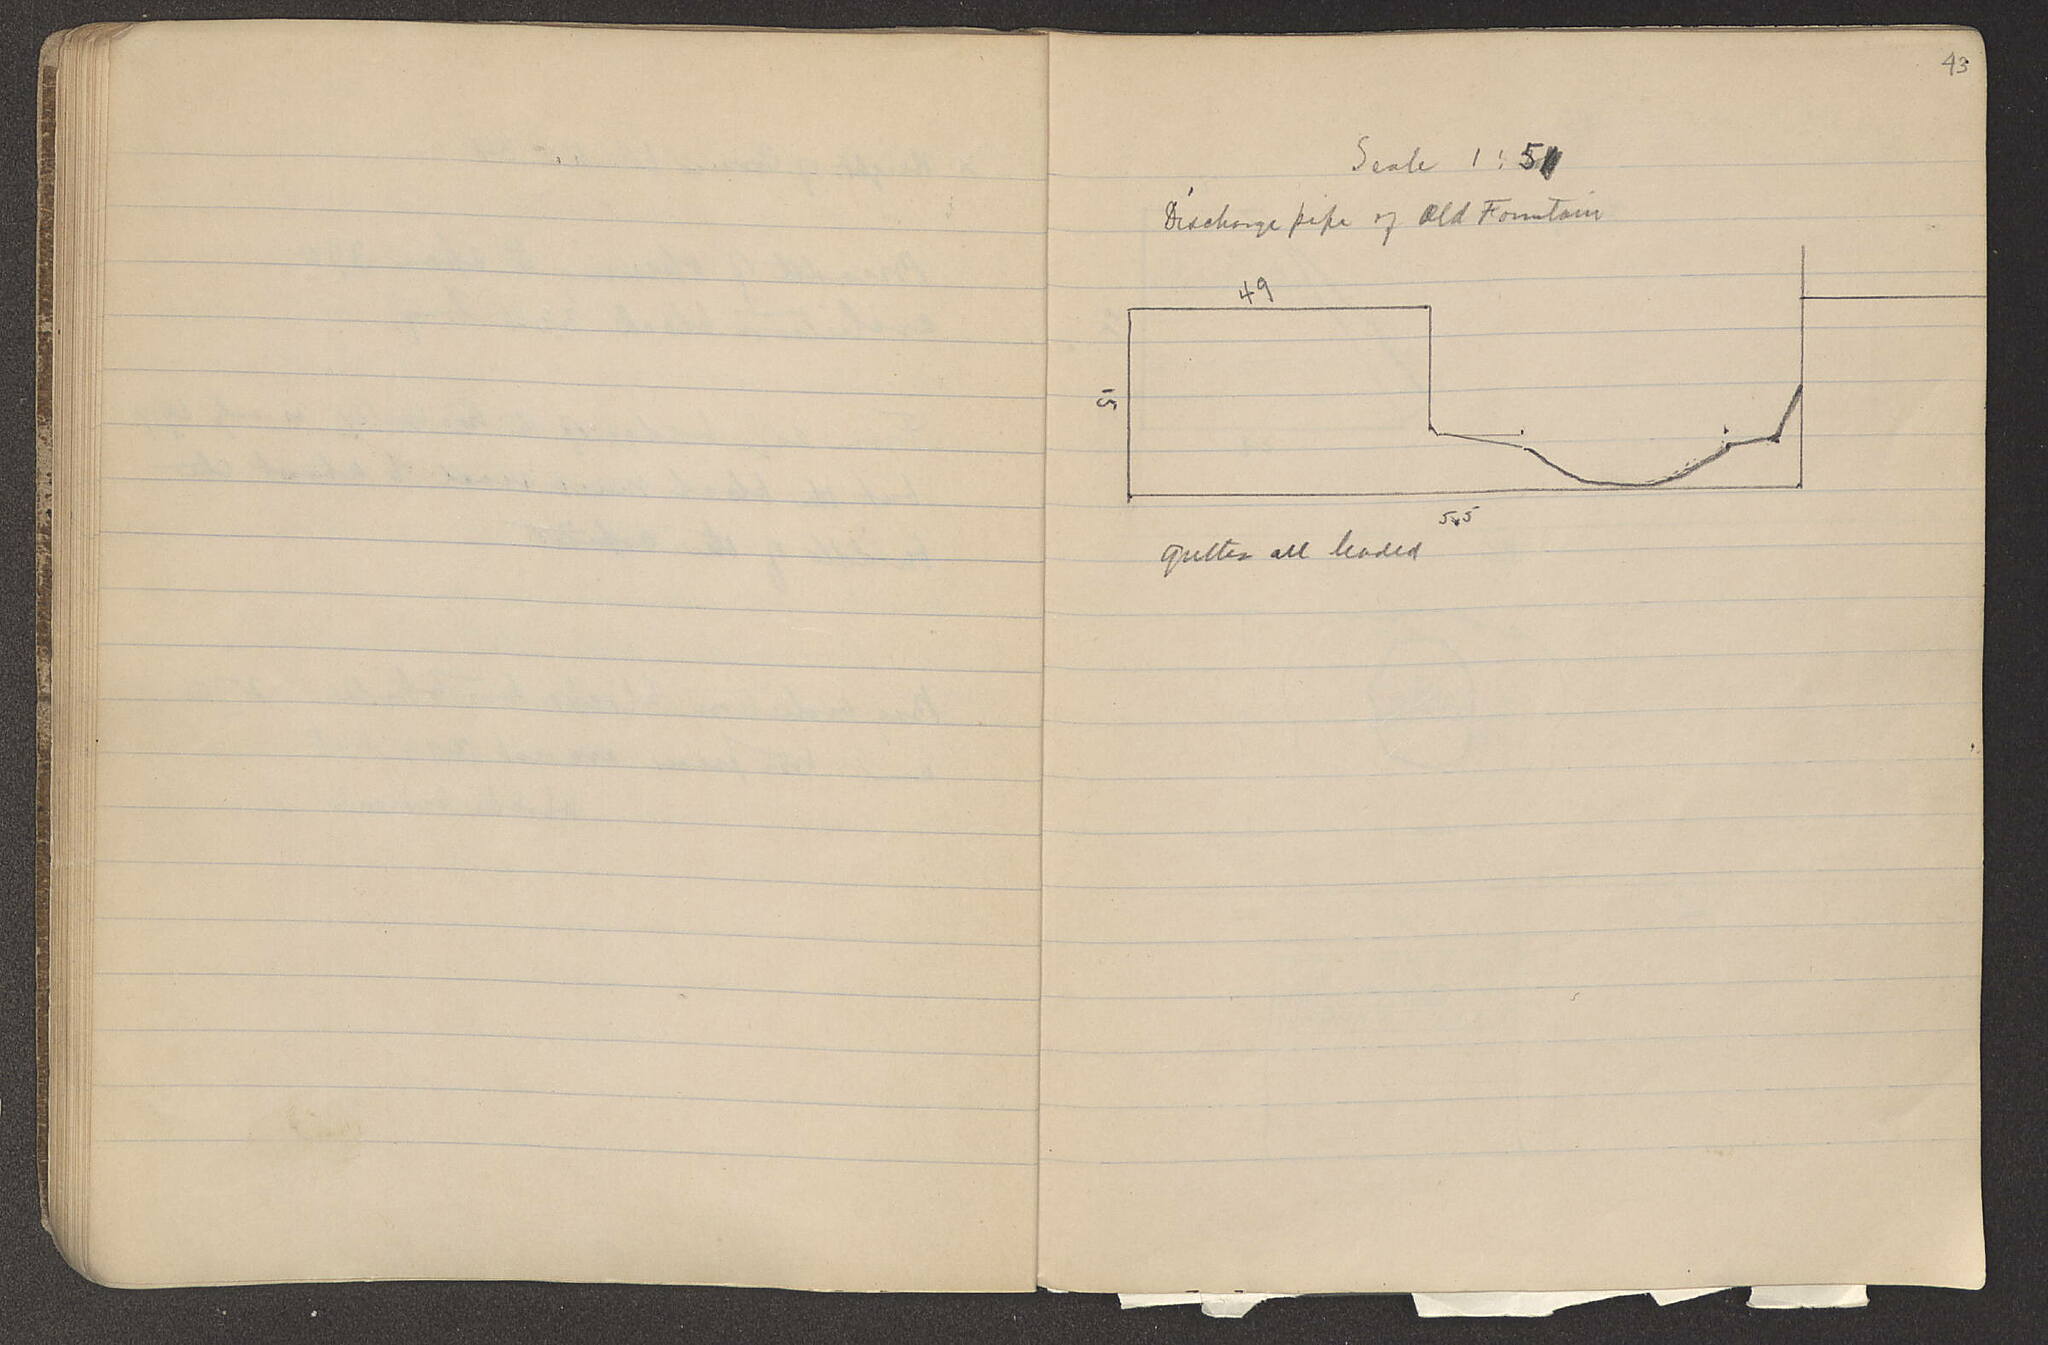 43
Scale 1:5
Discharge pipe of Old Fountain
49
51
5.5
gutter all leaded